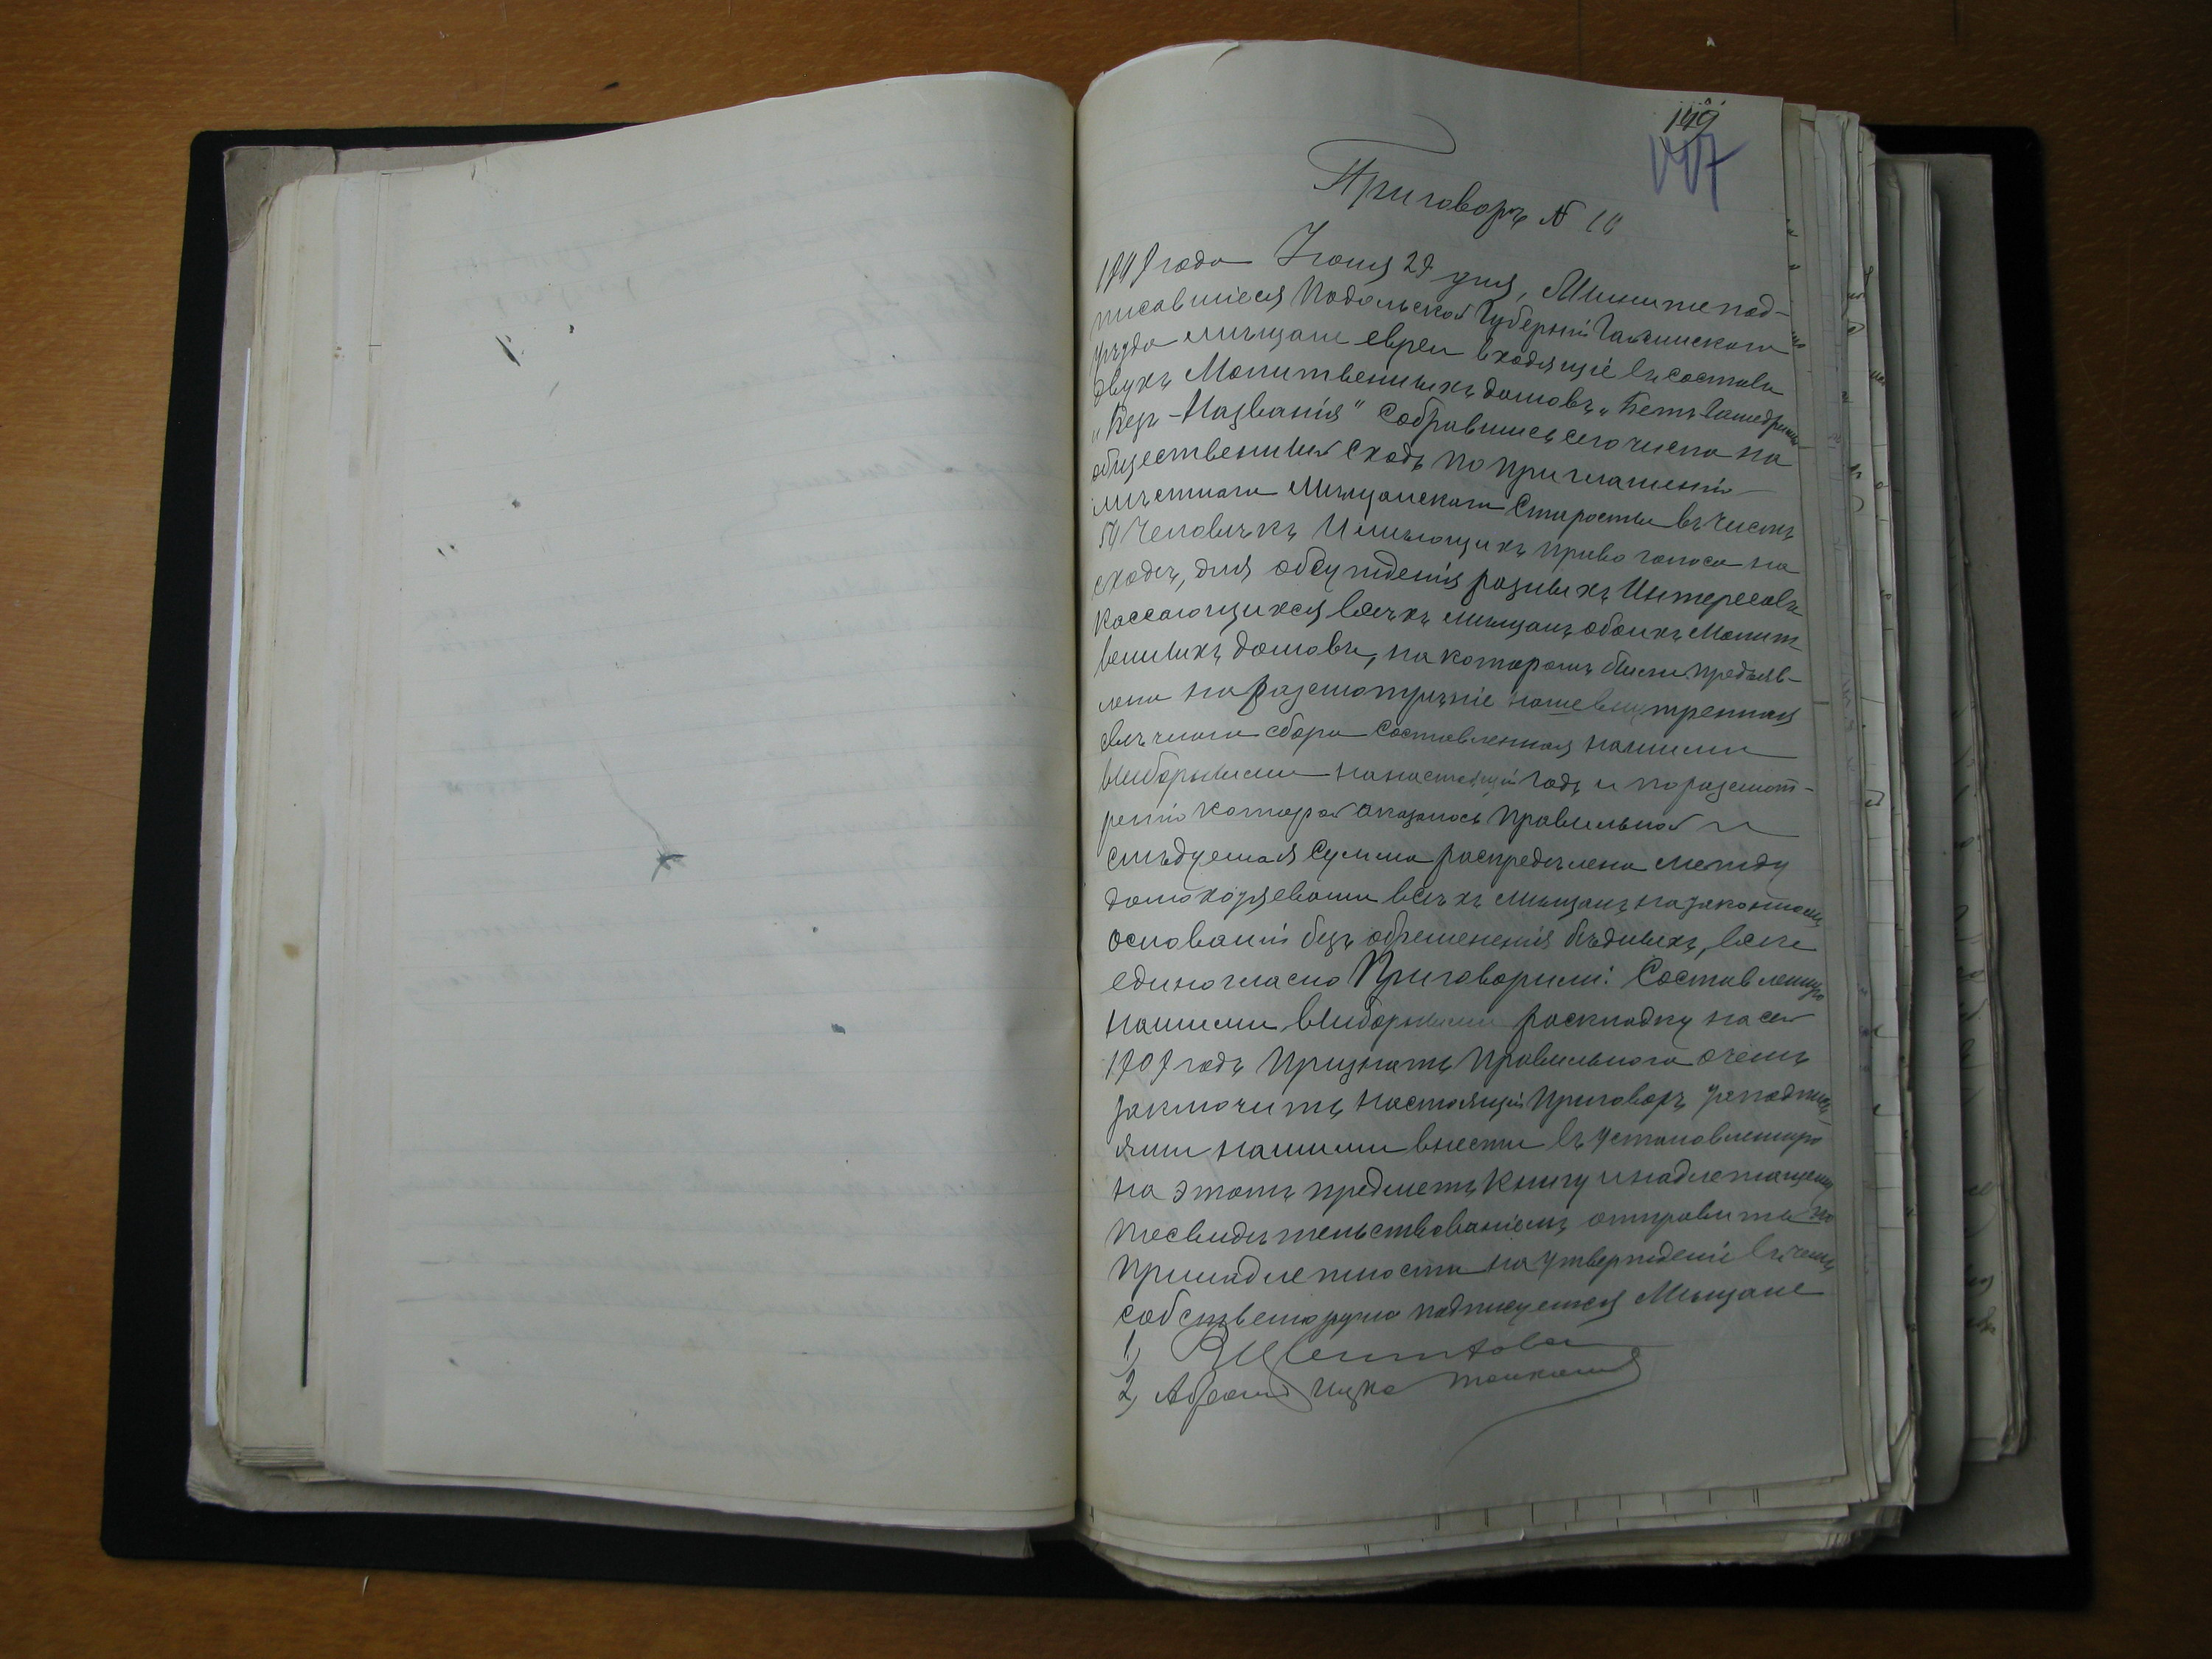 149
Приговоръ № 10
1909 года Іюня 29 дня, Мы ниже под-
писавшіеся Подольской Губерніи Гайсинскаго
уѣзда мѣщане евреи входящіе въ составъ
двухъ Молитвенныхъ домовъ „Бетъ
„Безъ-Названія" Собравшись сего числа на
общественный сходъ по приглашенію
мѣстнаго Мѣщанскаго Старосты въ числѣ
Человѣкъ Имѣющихъ право голоса на
сходѣ, для обсужденія разныхъ Интересовъ
Кассающихся всѣхъ мѣщанъ обоихъ Молит
венныхъ домовъ, на которомъ были предъяв-
лена на разсмотрѣніе наше внутренная
сбора Составленная нашими
выборными на настоящій годъ и по разсмот-
рѣнію Которой оказалось Правильной и
слѣдуемая Сумма распредѣлена между
домохозяевами всѣхъ мѣщанъ на законномъ
основаніи безъ обремененія бѣдныхъ, всѣ
единогласно Приговорили: Составленную
нашими выборными раскладку на сей
1909 годъ Признать Правильного о чемъ
заключить настоящій Приговоръ за подпис
ями нашими внести въ установленную
на этотъ предметъ Книгу и надлежащему
посвидѣтельствованіемъ отправить по
принадлежности на утвержденіе въ чемъ
собственоручно подписуемся Мѣщане
1)
2) Абрамъ Ицко